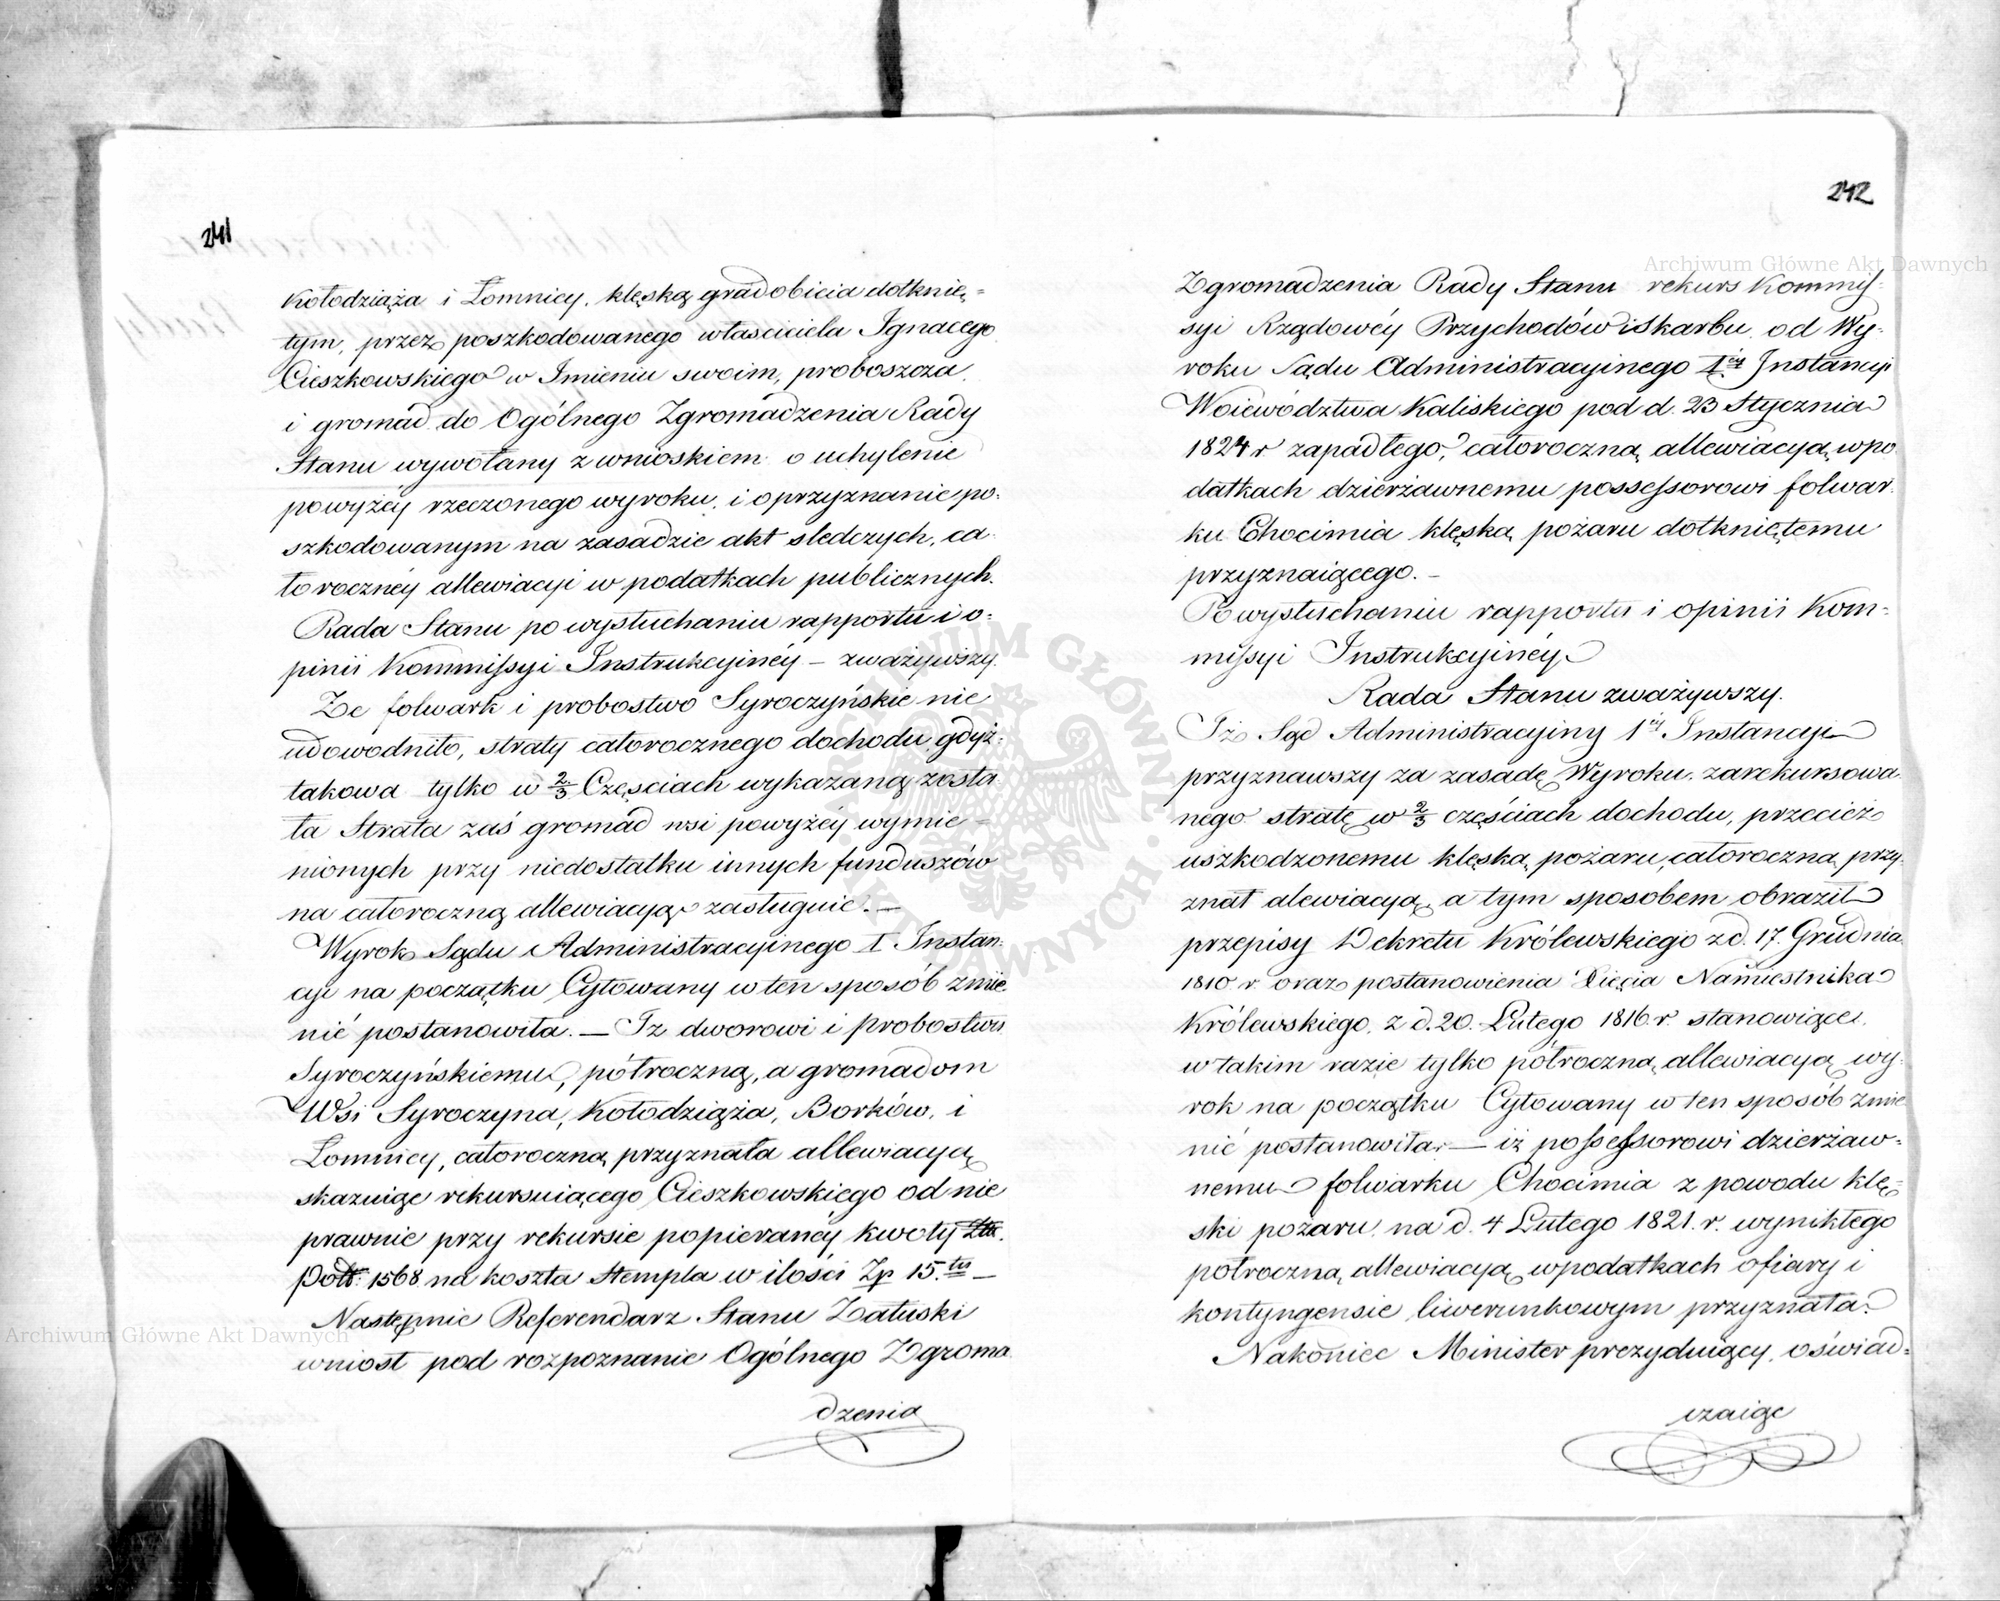 241
Kołodziąża i Łomnicy, klęską gradobicia dotknię-
tym, przez poszkodowanego właściciela Ignacego
Cieszkowskiego w Imieniu swoim, proboszcza
i gromad do Ogólnego Zgromadzenia Rady
Stanu wywołany z wnioskiem o uchylenie
powyżéy rzeczonego wyroku, i o przyznanie po-
szkodowanym na zasadzie akt sledczych, ca-
łorocznéy allewiacyi w podatkach publicznych.
Rada Stanu po wysłuchaniu rapportu i o-
pinii Kommissyi Instrukcyinéy – zważywszy.
Ze folwark i probostwo Syroczyńskie nie
udowodniło, straty całorocznego dochodu, gdyż
takowa tylko w 2/3 Częsciach wykazaną zosta
ła Strata zaś gromad wsi powyżéy wymie-
nionych przy niedostatku innych funduszów
na całoroczną allewiacyą zasługuie. —
Wyrok Sądu Administracyinego I. Instan-
cyi na początku Cytowany w ten sposób zmie
nić postanowiła. — Iz dworowi i Probostwu
Syroczyńskiemu, półroczną, a gromadom
Wsi Syroczyna, Kołodziąża, Borków, i
Łomnicy, całoroczną przyznała allewiacyą
skazuiąc rekursuiącego Cieszkowskiego od nie
prawnie przy rekursie popieranéy kwoty Złt.
Pols: 1568 na koszta Stempla w ilości Zp 15.tu —
Następnie Referendarz Stanu Załuski
wniosł pod rozpoznanie Ogólnego Zgroma
dzenia
242
Zgromadzenia Rady Stanu rekurs Kommis-
syi Rządowéy Przychodów i Skarbu od Wy-
roku Sądu Administracyinego 1éy Instancyi
Woiewództwa Kaliskiego pod d. 23 Stycznia
1824 r zapadłego, całoroczną allewiacyą w po
datkach dzierżawnemu possessorowi folwar-
ku Chocimia klęską pożaru dotkniętemu
przyznaiącego. –
Po wysłuchaniu rapportu i opinii Kom-
missyi Instrukcyinéy
Rada Stanu zważywszy.
Iż Sąd Administracyiny 1éy Instancyi
przyznawszy za zasadę Wyroku zarekursowa
nego stratę w 2/3 częściach dochodu, przecież
uszkodzonemu klęską pożaru, całoroczną przy-
znał alewiacyą, a tym sposobem obraził
przepisy Dekretu Królewskiego z d. 17. Grudnia
1810 r oraz postanowienia Xięcia Namiestnika
Królewskiego z d. 20. Lutego 1816. r. stanowiące,
w takim razie tylko półroczną allewiacyą wy-
rok na początku Cytowany w ten sposób zmie
nić postanowiła, — iż possessorowi dzierżaw-
nemu folwarku Chocimia z powodu klę-
ski pożaru na d. 4 Lutego 1821. r. wynikłego
półroczną allewiacyą w podatkach ofiary i
kontyngensie liwerunkowym przyznała.
Nakoniec Minister prezyduiący, oświad-
czaiąc
Archiwum Główne Akt Dawnych
Archiwum Główne Akt Dawnych
ARCHIWUM GŁÓWNE AKT DAWNYCH